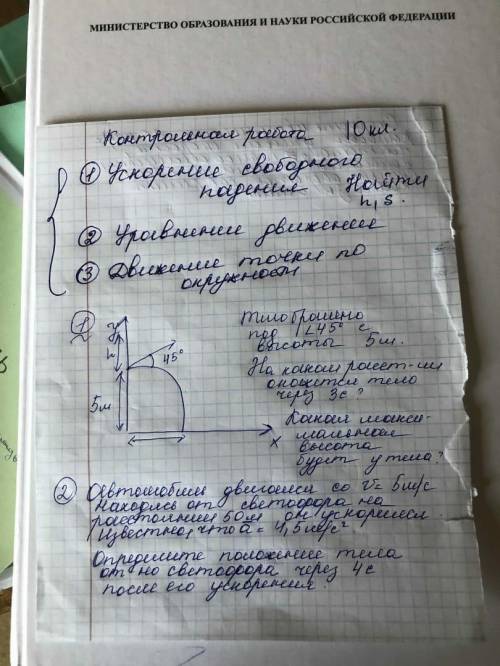 МИНИСТЕРСТВО ОБРАЗОВАНИЯ И НАУКИ РОССИЙСКОЙ ФЕДЕРАЦИИ
Контрольная работа 10 кл.
① Ускорение свободного
падения Найти
h, S.
② Уравнение движение
③ Движение точки по
окружности
①
y
h
45°
5м
x
Тело брошено
под ∠45° с
высоты 5м.
На каком расст-ии
окажется тело
через 3с?
Какая макси-
мальная
высота
будет у тела?
② Автомобиль двигался со v = 5м/с
находясь от светофора на
расстоянии 50м он ускорился.
Известно, что a = 1,5м/с²
Определите положение тела
от но светофора через 4с
после его ускорения.